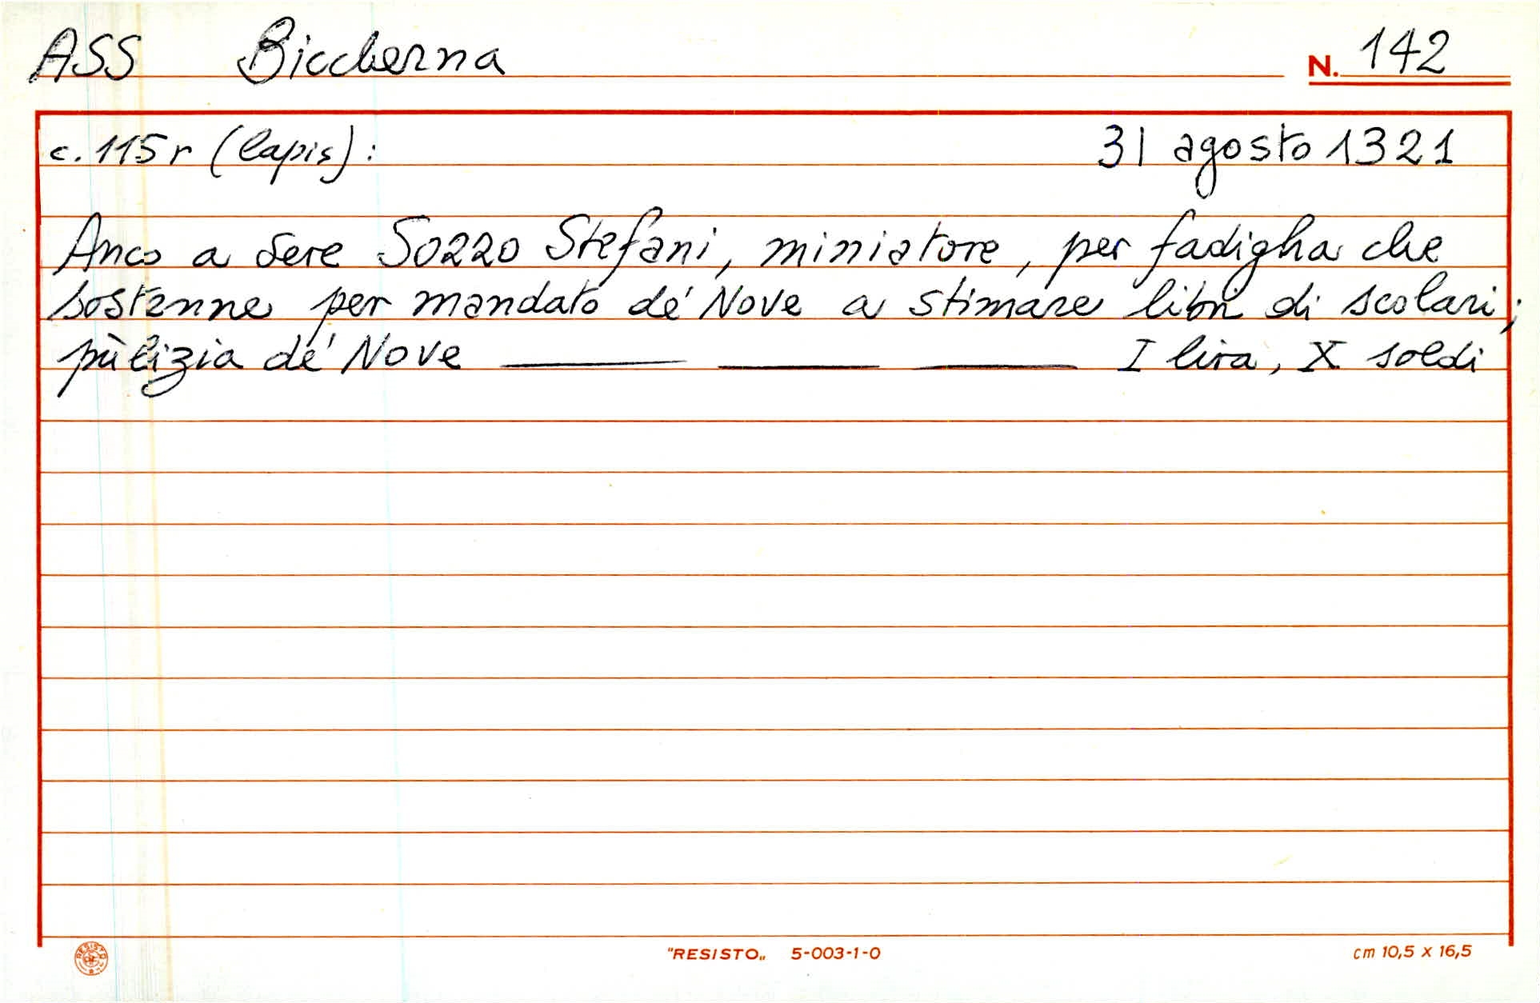 ASS Biccherna N. 142
c. 115 r (lapis): 31 agosto 1321
Anco a Sere Sozzo Stefani, miniatore, per fadigha che
sostenne per mandato de' Nove a stimare libri di scolari;
pulizia de' Nove I lira, X soldi
"RESISTO„ 5-003-1-0 cm 10,5 x 16,5